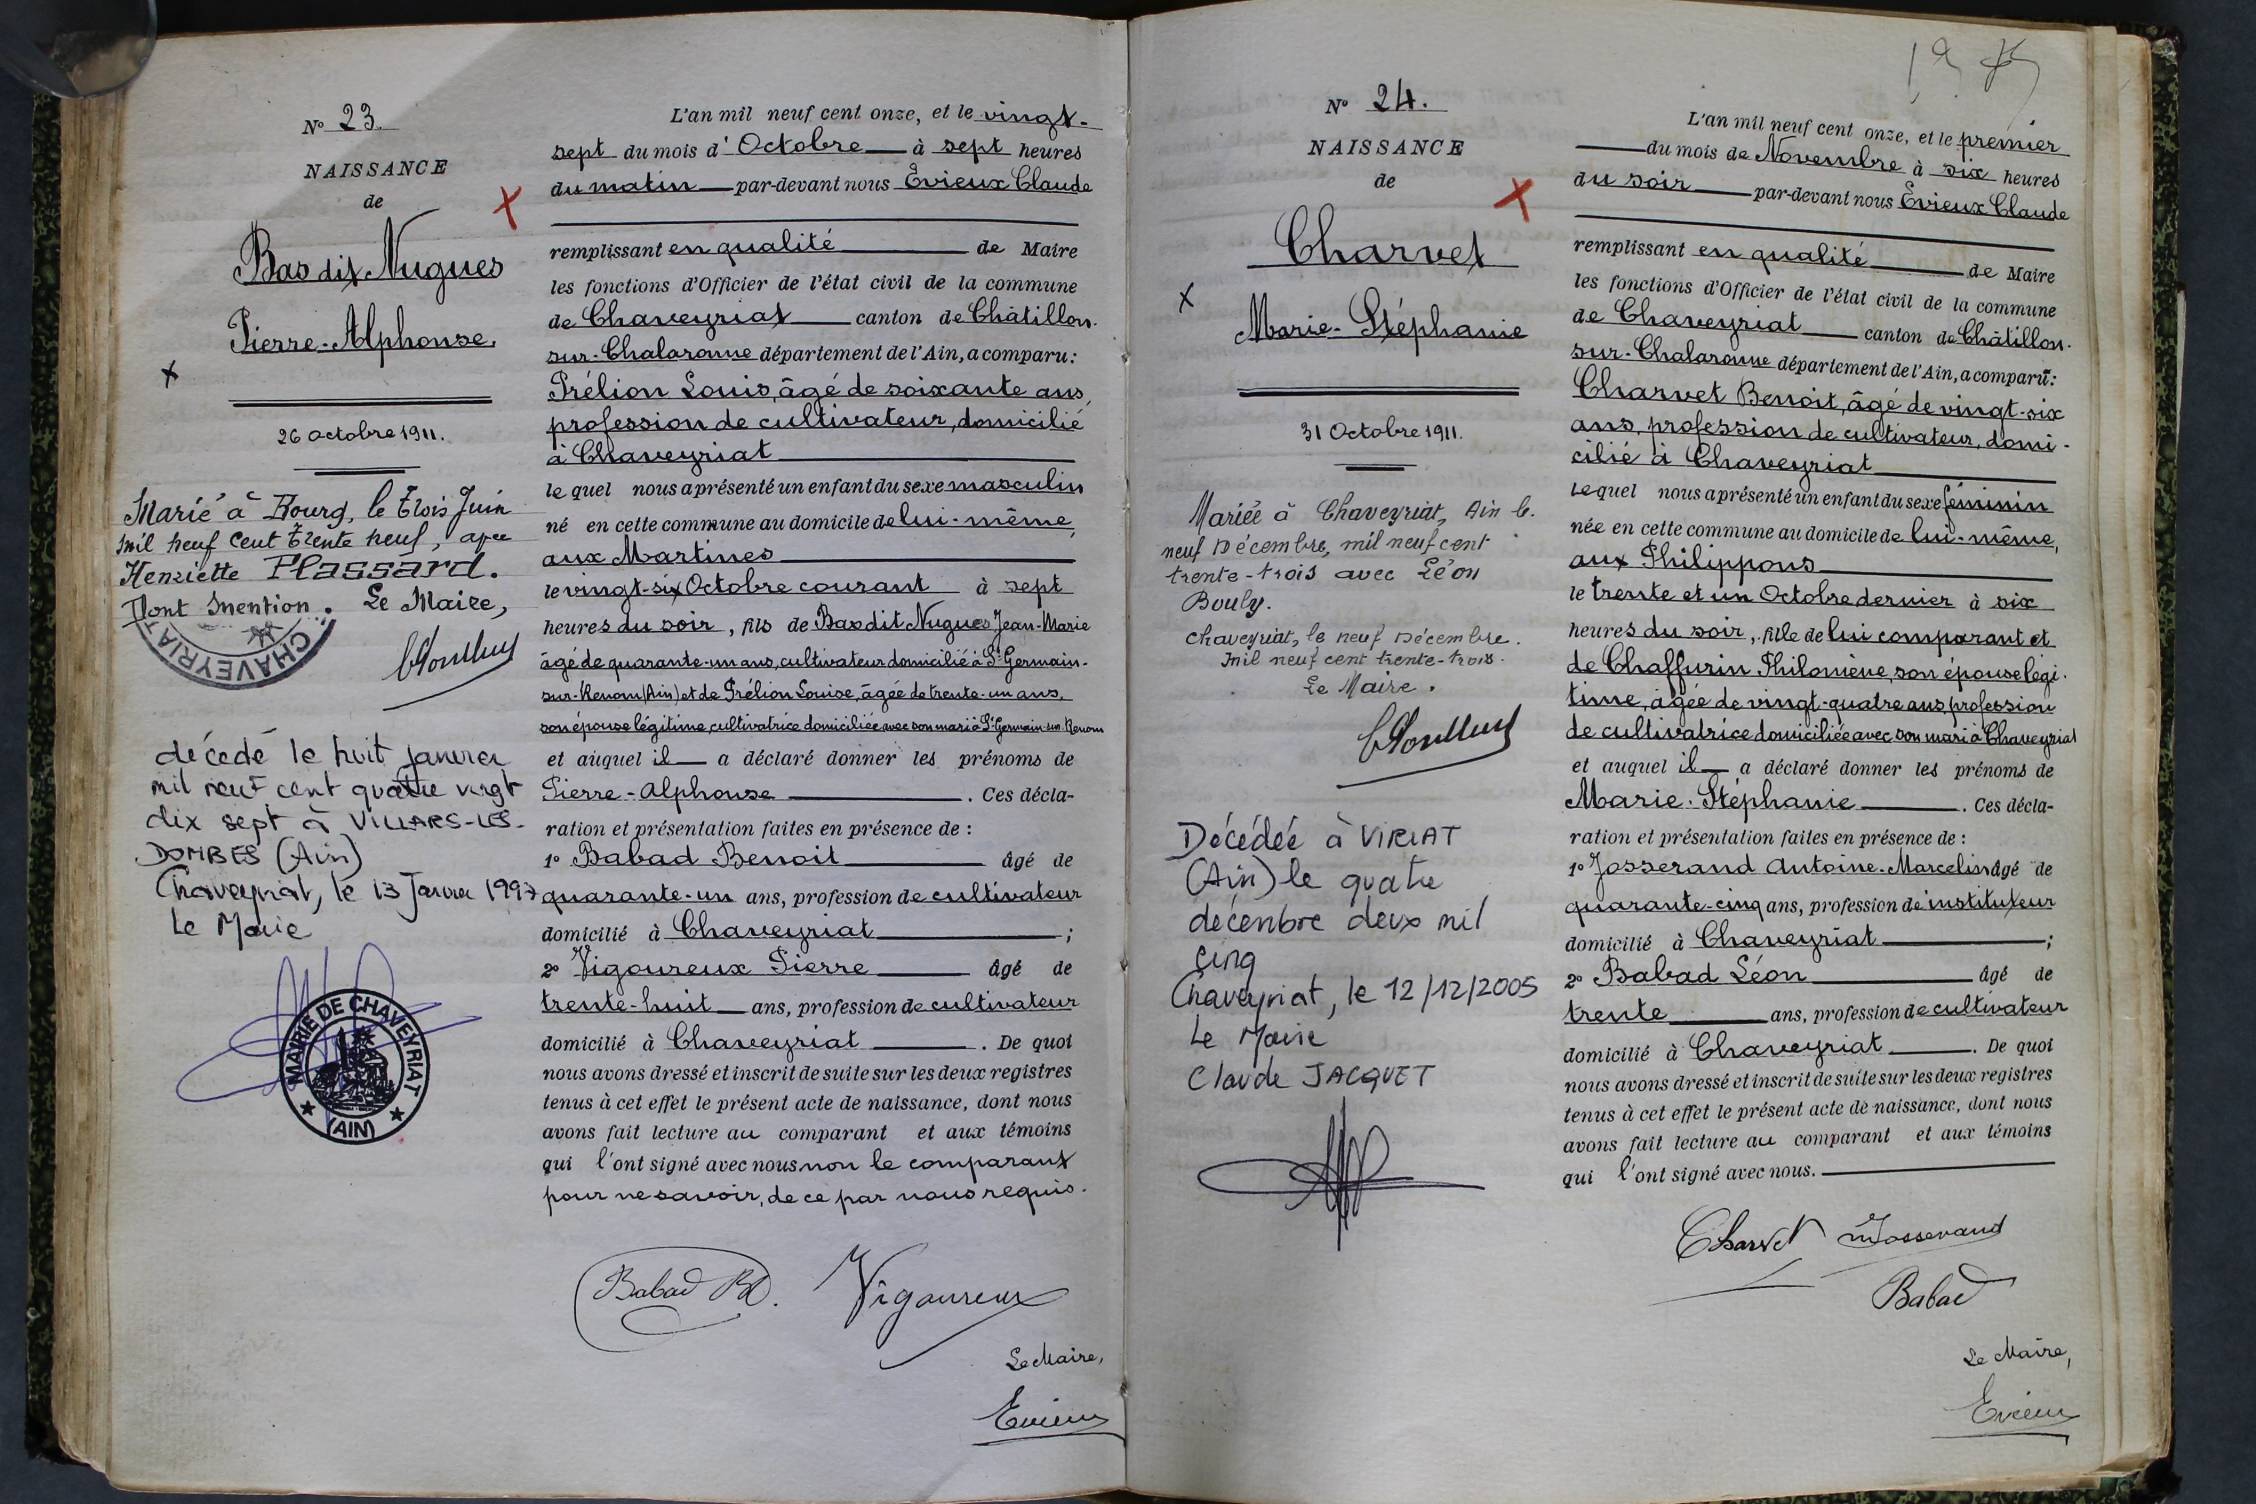 N° 23.
NAISSANCE
de
Bas dit Nugues
Pierre-Alphonse.
26 octobre 1911.
Marié à Bourg, le Trois Juin
mil neuf cent Trente neuf, avec
Henriette Plassard.
Dont mention. Le Maire,
CHAVEYRIAT
décédé le huit janvier
mil neuf cent quatre vingt
dix sept à VILLARS-LES-
DOMBES (Ain)
Chaveyriat, le 13 Janvier 1997
Le Maire
MAIRIE DE CHAVEYRIAT
(AIN)
L'an mil neuf cent onze, et le vingt-
sept du mois d'Octobre à sept heures
du matin par-devant nous Evieux Claude
remplissant en qualité de Maire
les fonctions d'Officier de l'état civil de la commune
de Chaveyriat canton de Châtillon-
sur-Chalaronne département de l'Ain, a comparu:
Prélion Louis, âgé de soixante ans,
profession de cultivateur, domicilié
à Chaveyriat
le quel nous a présenté un enfant du sexe masculin
né en cette commune au domicile de lui-même,
aux Martines
le vingt-six Octobre courant à sept
heures du soir, fils de Bas dit Nugues Jean-Marie
âgé de quarante-un ans, cultivateur domicilié à St Germain-
sur-Renom (Ain) et de Prélion Louise, âgée de trente-un ans,
son épouse légitime, cultivatrice domiciliée avec son mari à St Germain-sur-Renom
et auquel il a déclaré donner les prénoms de
Pierre-Alphonse. Ces décla-
ration et présentation faites en présence de :
1° Babad Benoit âgé de
quarante-un ans, profession de cultivateur
domicilié à Chaveyriat ;
2° Vigoureux Pierre âgé de
trente-huit ans, profession de cultivateur
domicilié à Chaveyriat. De quoi
nous avons dressé et inscrit de suite sur les deux registres
tenus à cet effet le présent acte de naissance, dont nous
avons fait lecture au comparant et aux témoins
qui l'ont signé avec nous non le comparant
pour ne savoir, de ce par nous requis.
Babad B. Vigoureux
Le Maire,
Evieux
N° 24.
NAISSANCE
de
Charvet
Marie-Stéphanie
31 Octobre 1911.
Mariée à Chaveyriat, Ain le
neuf Décembre, mil neuf cent
trente-trois avec Léon
Bouly.
Chaveyriat, le neuf Décembre.
mil neuf cent trente-trois.
Le Maire.
Décédée à VIRIAT
(Ain) le quatre
décembre deux mil
cinq
Chaveyriat, le 12/12/2005
Le Maire
Claude JACQUET
L'an mil neuf cent onze, et le premier
du mois de Novembre à six heures
du soir par-devant nous Evieux Claude
remplissant en qualité de Maire
les fonctions d'Officier de l'état civil de la commune
de Chaveyriat canton de Châtillon-
sur-Chalaronne département de l'Ain, a comparu:
Charvet Benoit, âgé de vingt-six
ans, profession de cultivateur, domi-
cilié à Chaveyriat
lequel nous a présenté un enfant du sexe féminin
née en cette commune au domicile de lui-même,
aux Philippons
le trente et un Octobre dernier à six
heures du soir, fille de lui comparant et
de Chaffurin Philomène, son épouse légi-
time, âgée de vingt-quatre ans, profession
de cultivatrice domiciliée avec son mari à Chaveyriat
et auquel il a déclaré donner les prénoms de
Marie-Stéphanie. Ces décla-
ration et présentation faites en présence de :
1° Josserand Antoine-Marcelin âgé de
quarante-cinq ans, profession de instituteur
domicilié à Chaveyriat ;
2° Babad Léon âgé de
trente ans, profession de cultivateur
domicilié à Chaveyriat. De quoi
nous avons dressé et inscrit de suite sur les deux registres
tenus à cet effet le présent acte de naissance, dont nous
avons fait lecture au comparant et aux témoins
qui l'ont signé avec nous.
Charvet Josserand
Babad
Le Maire,
Evieux